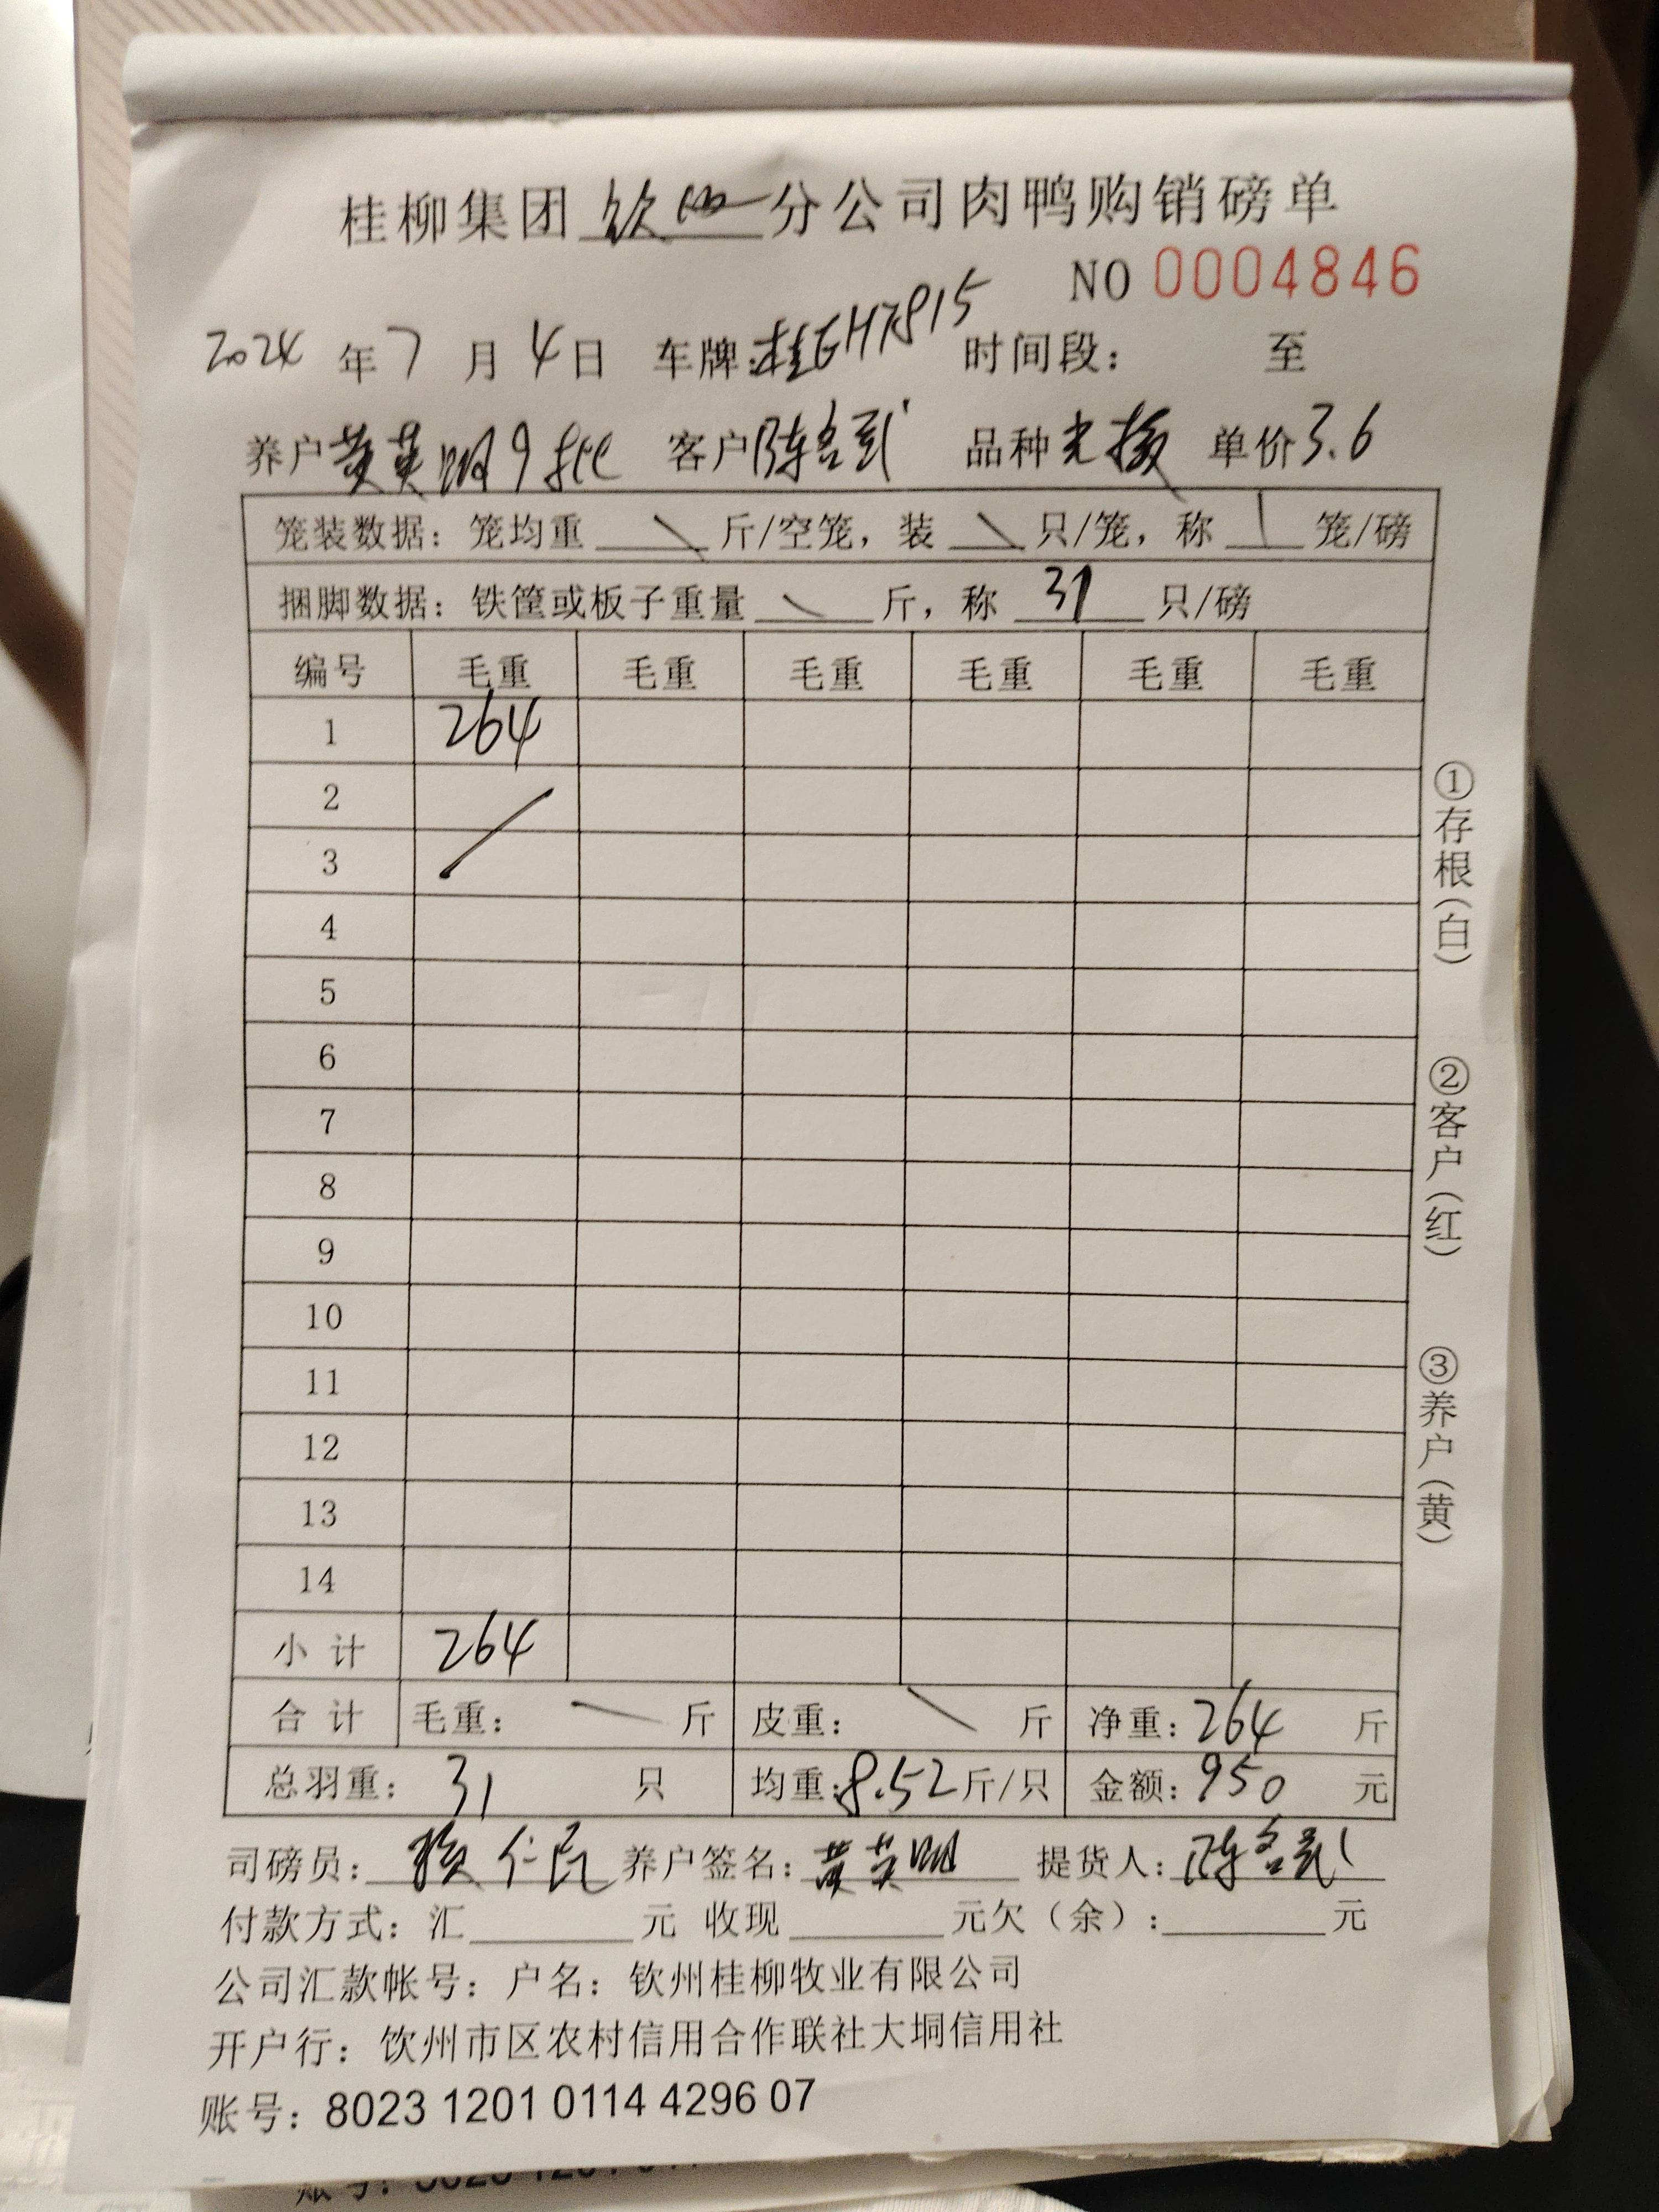 桂柳集团 钦州 分公司肉鸭购销磅单
NO 0004846
2024 年 7 月 4 日 车牌: 桂EH7815 时间段: 至
养户 黄英明9批 客户 陈名武 品种 光 单价 3.6
笼装数据: 笼均重 \ 斤/空笼, 装 \ 只/笼, 称 \ 笼/磅
捆脚数据: 铁筐或板子重量 \ 斤, 称 31 只/磅
编号 毛重 毛重 毛重 毛重 毛重 毛重
1 264
2
3
4
5
6
7
8
9
10
11
12
13
14
小计 264
合计 毛重: \ 斤 皮重: \ 斤 净重: 264 斤
总羽重: 31 只 均重: 8.52 斤/只 金额: 950 元
司磅员: 仁民 养户签名: 黄英明 提货人: 陈名武
付款方式: 汇 元 收现 元欠(余): 元
公司汇款帐号: 户名: 钦州桂柳牧业有限公司
开户行: 钦州市区农村信用合作联社大垌信用社
账号: 8023 1201 0114 4296 07
①存根(白)
②客户(红)
③养户(黄)